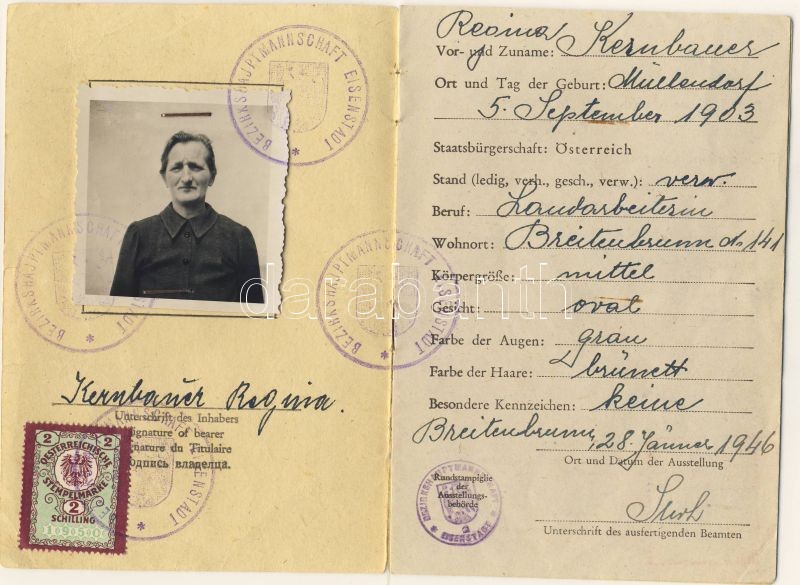 BEZIRKSHAUPTMANNSCHAFT EISENSTADT
BEZIRKSHAUPTMANNSCHAFT EISENSTADT
BEZIRKSHAUPTMANNSCHAFT EISENSTADT
Kernbauer Regina.
Unterschrift des Inhabers
Signature of bearer
Signature du Titulaire
Подпись владелца.
EISENSTADT
2 2
OESTERREICHISCHE
STEMPELMARKE
2
SCHILLING
Regina
Vor- und Zuname: Kernbauer
Ort und Tag der Geburt: Müllendorf
5. September 1903
Staatsbürgerschaft: Österreich
Stand (ledig, verh., gesch., verw.): verw.
Beruf: Landarbeiterin
Wohnort: Breitenbrunn No 141
Körpergröße: mittel
Gesicht: oval
Farbe der Augen: grau
Farbe der Haare: brünett
Besondere Kennzeichen: keine
Breitenbrunn, 28. Jänner 1946
Ort und Datum der Ausstellung
Rundstampiglie
der
Ausstellungs-
behörde
BEZIRKSHAUPTMANNSCHAFT
2
EISENSTADT
Unterschrift des ausfertigenden Beamten
darabanth